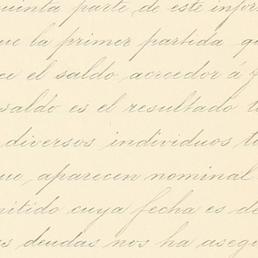 quinta parte de este infor
que la primer partida qu
ce el saldo, acreedor á f
saldo es el resultado t
diversos individuos t
que, aparecen nominal
mitido cuya fecha es de
as deudas nos ha asegu